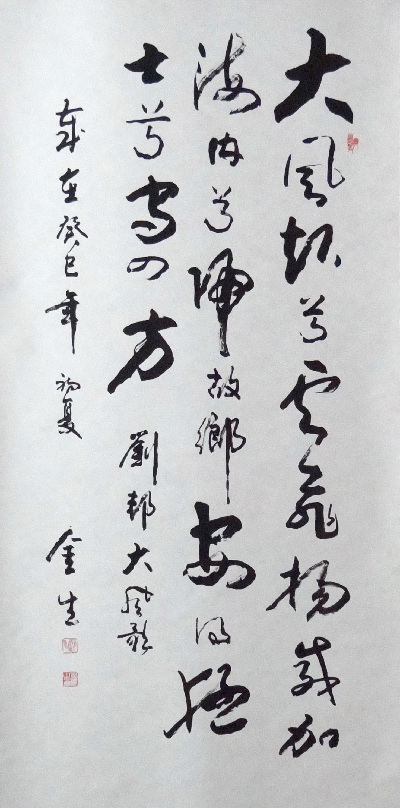 大風起兮云飛揚威加
海内兮歸故鄉安得猛
士兮守四方 劉邦大風歌
歲在癸巳年初夏 金生